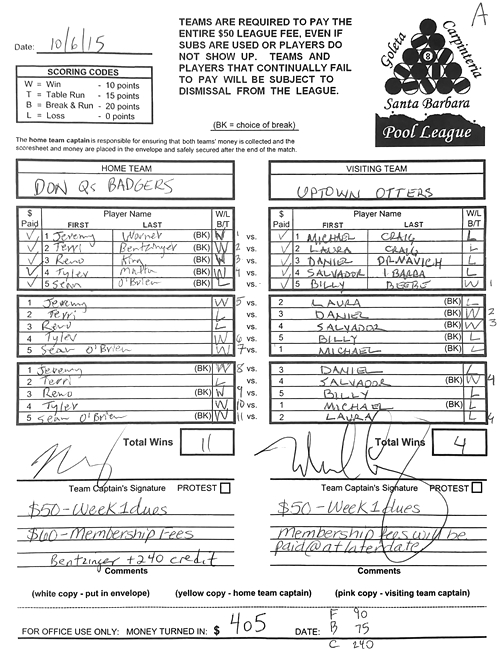 A
TEAMS ARE REQUIRED TO PAY THE
ENTIRE $50 LEAGUE FEE, EVEN IF
SUBS ARE USED OR PLAYERS DO
NOT SHOW UP. TEAMS AND
PLAYERS THAT CONTINUALLY FAIL
TO PAY WILL BE SUBJECT TO
DISMISSAL FROM THE LEAGUE.
Date: 10/6/15
SCORING CODES
W = Win - 10 points
T = Table Run - 15 points
B = Break & Run - 20 points
L = Loss - 0 points
Goleta
Carpinteria
8
Santa Barbara
Pool League
(BK = choice of break)
The home team captain is responsible for ensuring that both teams' money is collected and the
scoresheet and money are placed in the envelope and safely secured after the end of the match.
HOME TEAM VISITING TEAM
DON Qs BADGERS UPTOWN OTTERS
$ Paid Player Name FIRST LAST W/L B/T $ Paid Player Name FIRST LAST W/L B/T
✓ 1 Jeremy Worner (BK) W 1 vs. ✓ 1 MICHAEL CRAIG L
✓ 2 Terri Bentzinger (BK) W 2 vs. ✓ 2 LAURA CRAIG L
✓ 3 Reno King (BK) W 3 vs. ✓ 3 DANIEL L
✓ 4 Tyler (BK) W 4 vs. ✓ 4 SALVADOR IBARRA L
✓ 5 Sean O'Brien (BK) L vs. ✓ 5 BILLY BEEBE W 1
1 Jeremy W 5 vs. 2 LAURA (BK) L
2 Terri L vs. 3 DANIEL (BK) W 2
3 Reno L vs. 4 SALVADOR (BK) W 3
4 Tyler W 6 vs. 5 BILLY (BK) L
5 Sean O'Brien W 7 vs. 1 MICHAEL (BK) L
1 Jeremy (BK) W 8 vs. 3 DANIEL L
2 Terri L vs. 4 SALVADOR (BK) W 4
3 Reno (BK) W 9 vs. 5 BILLY L
4 Tyler W 10 vs. 1 MICHAEL (BK) L
5 Sean O'Brien (BK) W 11 vs. 2 LAURA L 4
Total Wins 11 Total Wins 4
Team Captain's Signature PROTEST Team Captain's Signature PROTEST
$50 - Week 1 dues $50 - Week 1 dues
$60 - Membership Fees Membership fees will be
Bentzinger +240 credit paid @ at later date
Comments Comments
(white copy - put in envelope) (yellow copy - home team captain) (pink copy - visiting team captain)
FOR OFFICE USE ONLY: MONEY TURNED IN: $ 405 DATE:
F 90
B 75
C 240